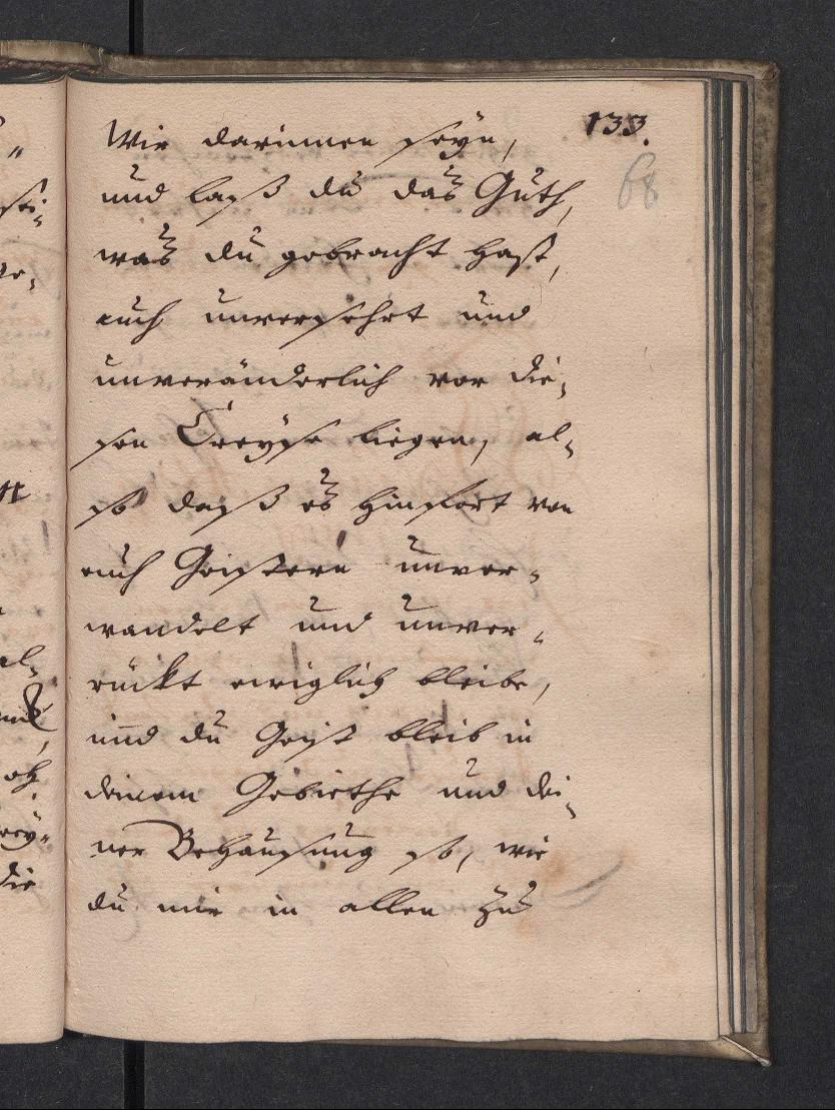 133.
68
Wir darinnen seyn,
und laß du das Guth,
was du gebracht hast,
auch unversehrt und
unveränderlich vor die¬
sen Creyse liegen, al¬
so daß es hinfort von
euch Geistern unver¬
wandelt und unver¬
rückt ewiglich bleibe,
und du Geist bleib in
deinem Gebiethe und dei¬
ner Behausung so, wie
du mir in allen zu